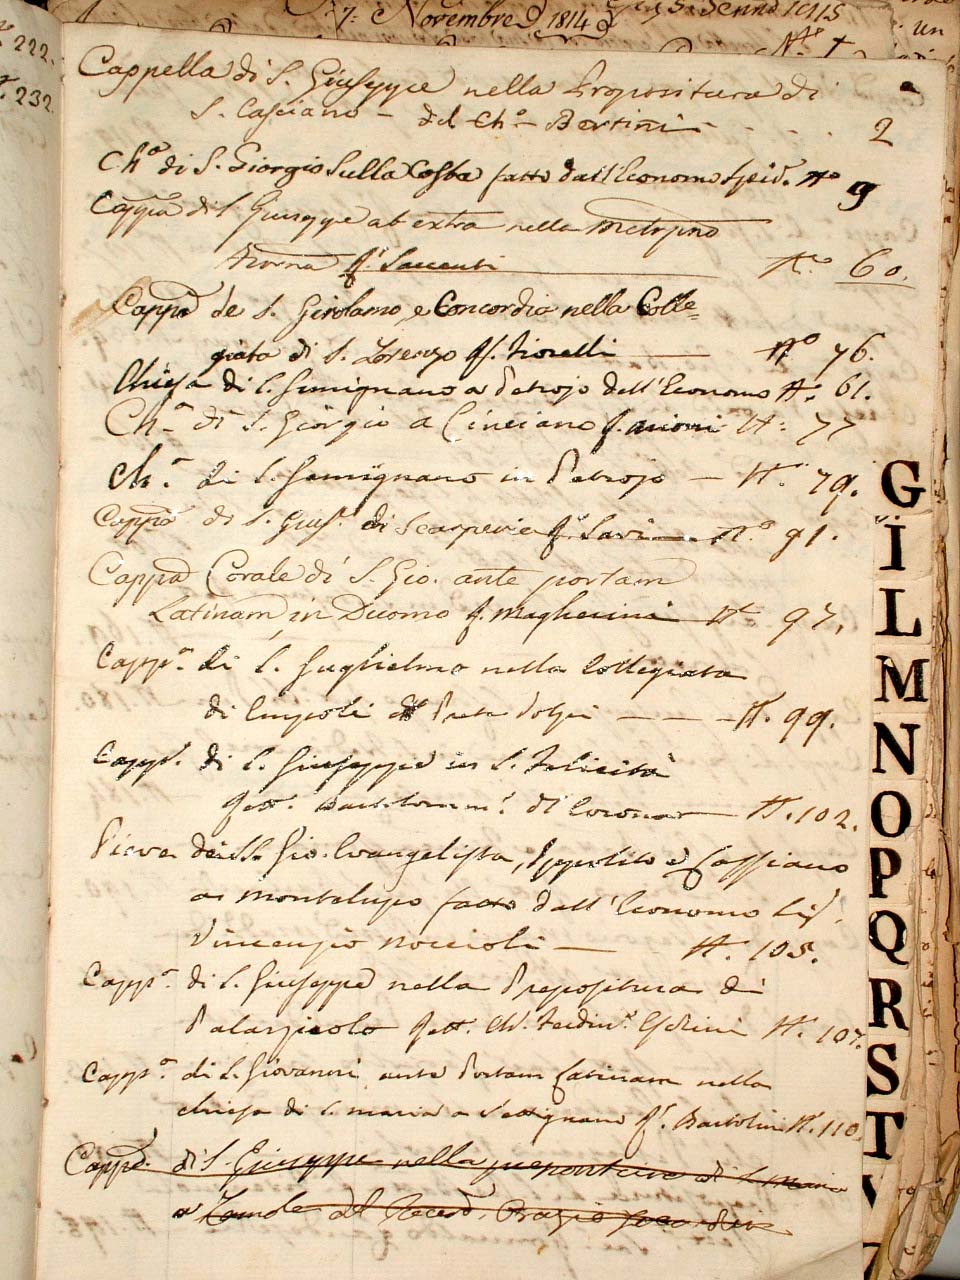 7: Novembre 1814
222.
232.
un
Cappella di S. Giuseppe nella Propositura di
S. Casciano - del Ch.o Bertini
2
Ch.a di S. Giorgio Sulla Costa fatto dall'Economo Spid. No 9
Capp.a di S. Giuseppe ab extra nella Metrop.na
f. Saccenti No 60.
Capp.a de S. Girolamo, e Concordia nella Colle=
giata di S. Lorenzo f. Fiorelli No 76.
Chiesa di S. Gimignano a Petrojo dell'Economo N. 61.
Ch.a di S. Giorgio a Cinciano f. N: 77
Ch.a di S. Gemignano in Petrojo - N. 79.
Capp.a di S. Gius.e di Scarperia f. Savi No 91.
Capp.a Corale di S. Gio. ante portam
Latinam in Duomo f. Magherini N. 97.
Capp.a di S. Guglielmo nella Collegiata
di Empoli Prete Volpi - - - N. 99.
Capp.a di S. Giuseppe in S. Felicita
N. 102.
Pieve dei SS. Gio. Evangelista, Ippolito e Cassiano
a Montelupo fatto dall'Economo
Vincenzio Noccioli — N. 105.
Capp.a di S. Giuseppe nella Prepositura di
Palazzuolo N. 107.
Capp.a di S. Giovanni ante Portam Latinam nella
chiesa di S. Maria a Settignano f. Bartolini N. 110.
Capp.a di S. Giuseppe nella prepositura di S. Maria
a
G
I
L
M
N
O
P
Q
R
S
T
V
Z